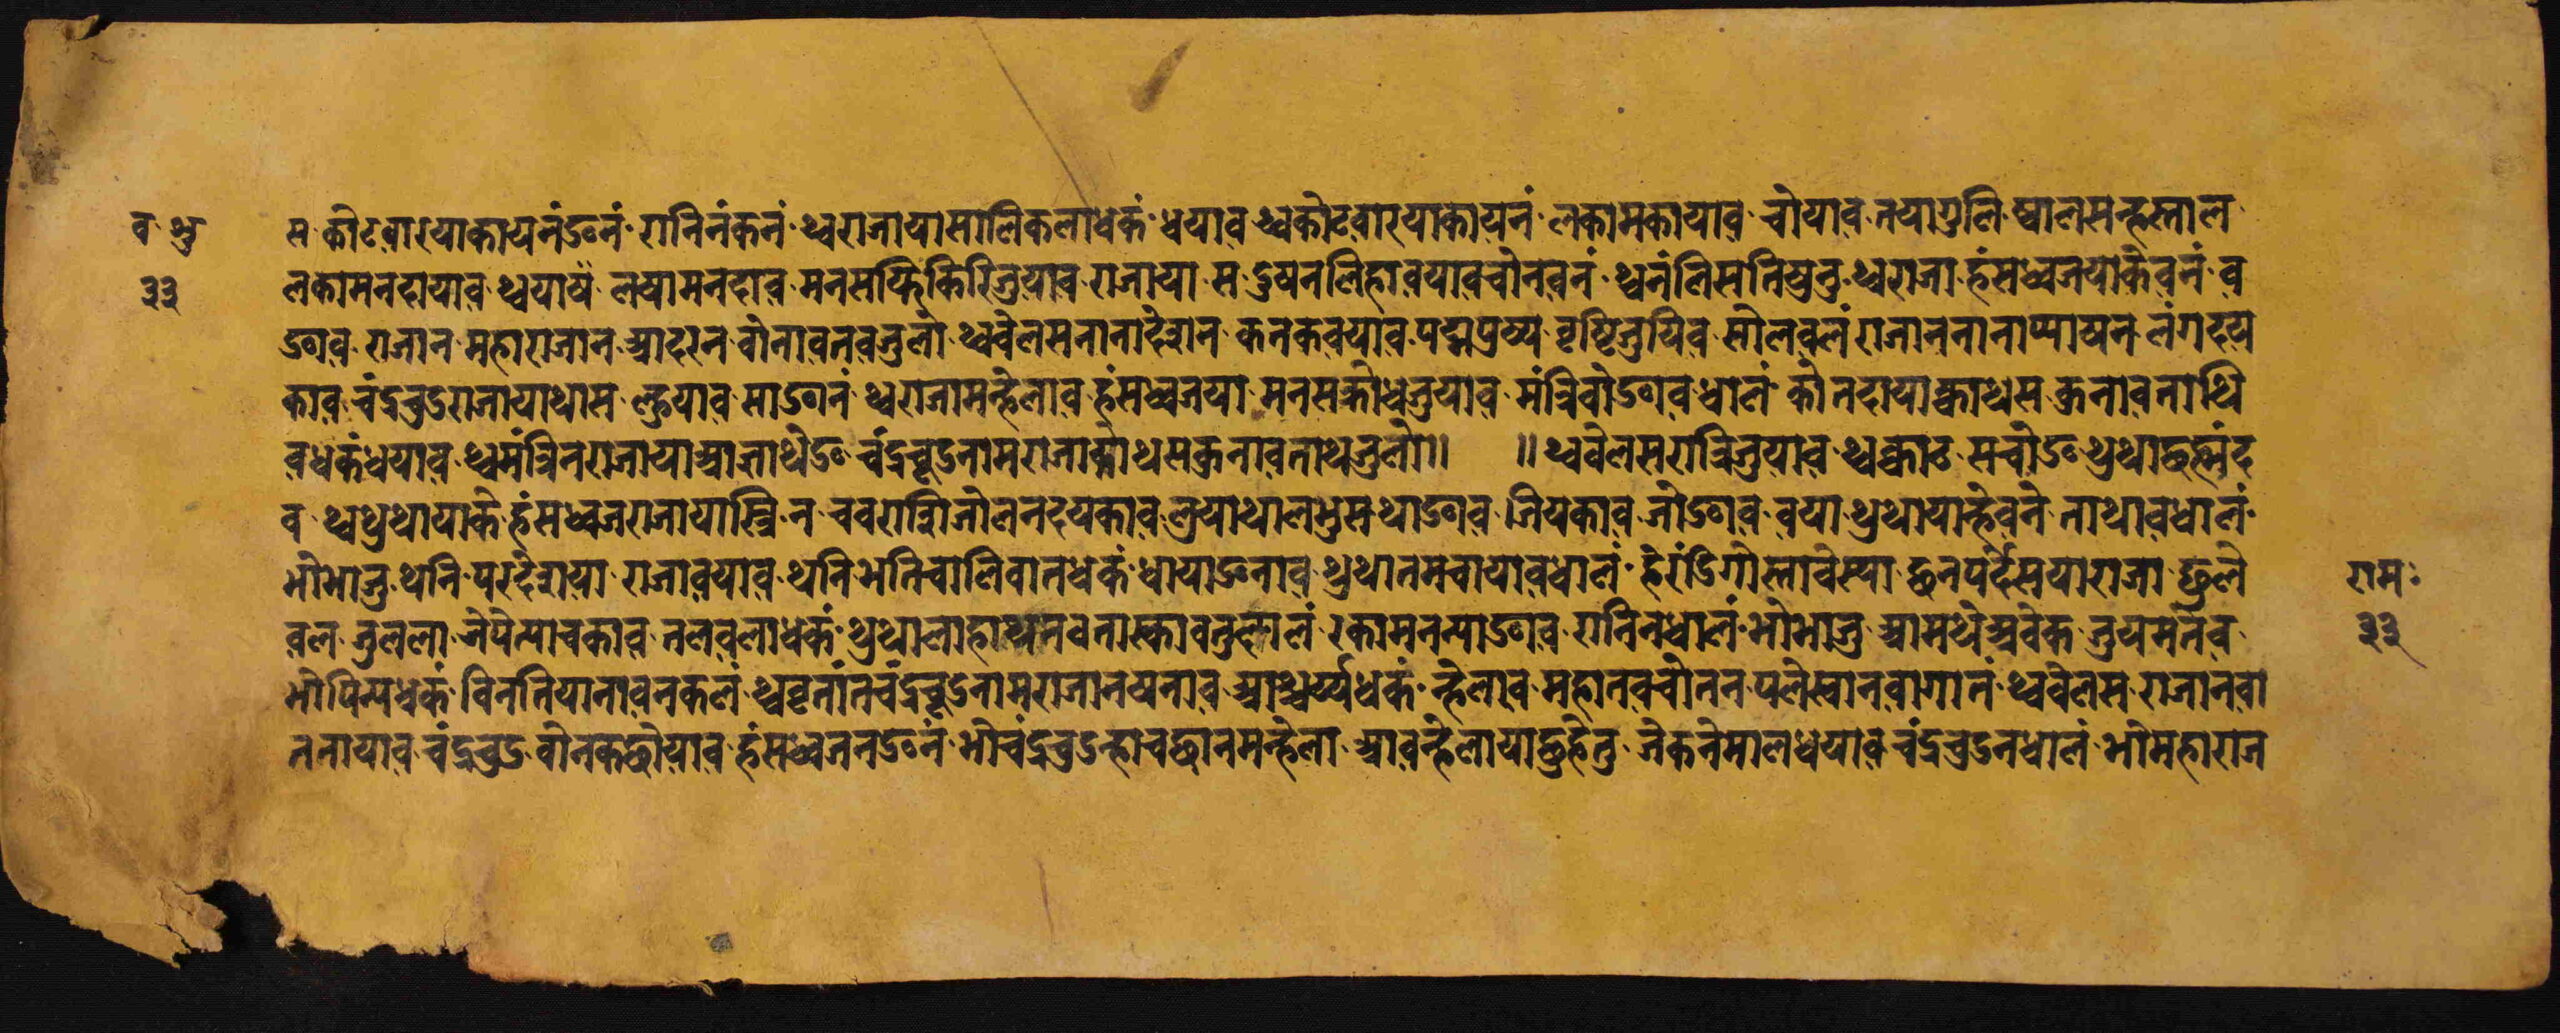 व भु
३३
स कोटवारयाकायनंङनं रानिनंकनं थ्वराजायासालिकलाधकं धयाव थ्वकोटवारयाकायनं लकामकायाव चोयाव तयागुलि ष्वालसन्हस्ताल
लकामनदायाव थ्वयाषं लषामनदाव मनसफिकिरिजुयाव राजाया स दुषनलिहावयावचोनवनं थ्वनंलिसनिषुनु थ्वराजा हंसध्वजयाकेवनं व
ङाव राजान महाराजान आदरन वोनावतवजुलो थ्ववेलसनानादेशन कनकवयाव पद्मपुष्प वृष्टिजुयिव सोलवलं राजाननानाप्याषन लंगदय
काव चंद्रचुडराजायाथास ल्हुयाव साङानं थ्वराजामन्हेलाव हंसध्वजया मनसक्रोधजुयाव मंत्रिवोङावधालं कोनदायाक्वाथस कुनावताथि
वधकंधयाव थ्वमंत्रिनराजायाआज्ञाथेङ चंद्रचूडनामराजाक्वाथसकुनावताथजुलो॥ ॥थ्ववेलसरात्रिजुयाव थ्वक्वाठ सचोङ थुथाछह्मंद
व थ्वथुथायाके हंसध्वजराजायास्त्रि न चवरात्रिजोलनदयकाव लुयाथालभुसथाङाव जियकाव जोङाव वया थुथायान्हेवने ताथावधालं
भोभाजु थनि परदेशया राजावयाव थनिभतिचालिवातधकं धायाङनाव थुथानमचायावधालं हेरांडिगोस्तावेस्या छनपर्देसयाराजा छुले
वल जुलला जेपेत्याचकाव तलवलाधकं थुथालाहाथनवनास्कावजुलोलं रकामनत्याङाव रानिनधालं भोभाजु आमथेअवेक जुयमतेव
भोपित्यधकं विनतियानावनकलं थ्ववृतांतचंद्रचूडनामराजानषनाव आश्चर्य्यधकं न्हेलाव महानक्चोतन पलेस्वानवागातं थ्ववेलस राजानवा
ननायाव चंद्रचुड वोनकछोयाव हंसध्वजनङनं भोचंद्रचुडन्हाचछानमन्हेला आवन्हेलायाछुहेतु जेकनेमालधयाव चंद्रचुडनधालं भोमहाराज
रामः
३३